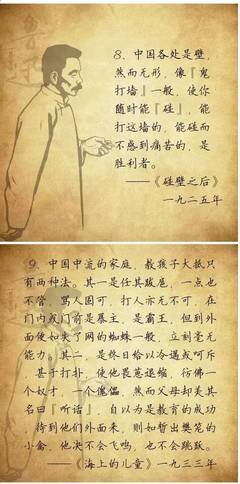 8、中国各处是壁，
然而无形，像『鬼
打墙』一般，使你
随时能『碰』，能
打这墙的，能碰而
不感到痛苦的，是
胜利者。
——《碰壁之后》
一九二五年
9、中国中流的家庭，教孩子大抵只
有两种法。其一是任其跋扈，一点也
不管，骂人固可，打人亦无不可，在
门内或门前是暴主，是霸王，但到外
面便如失了网的蜘蛛一般，立刻毫无
能力。其二，是终日给以冷遇或呵斥
，甚于打扑，使他畏葸退缩，仿佛一
个奴才，一个傀儡，然而父母却美其
名曰『听话』，自以为是教育的成功
，待到他们外面来，则如暂出樊笼的
小禽，他决不会飞鸣，也不会跳跃。
——《海上的儿童》一九三三年